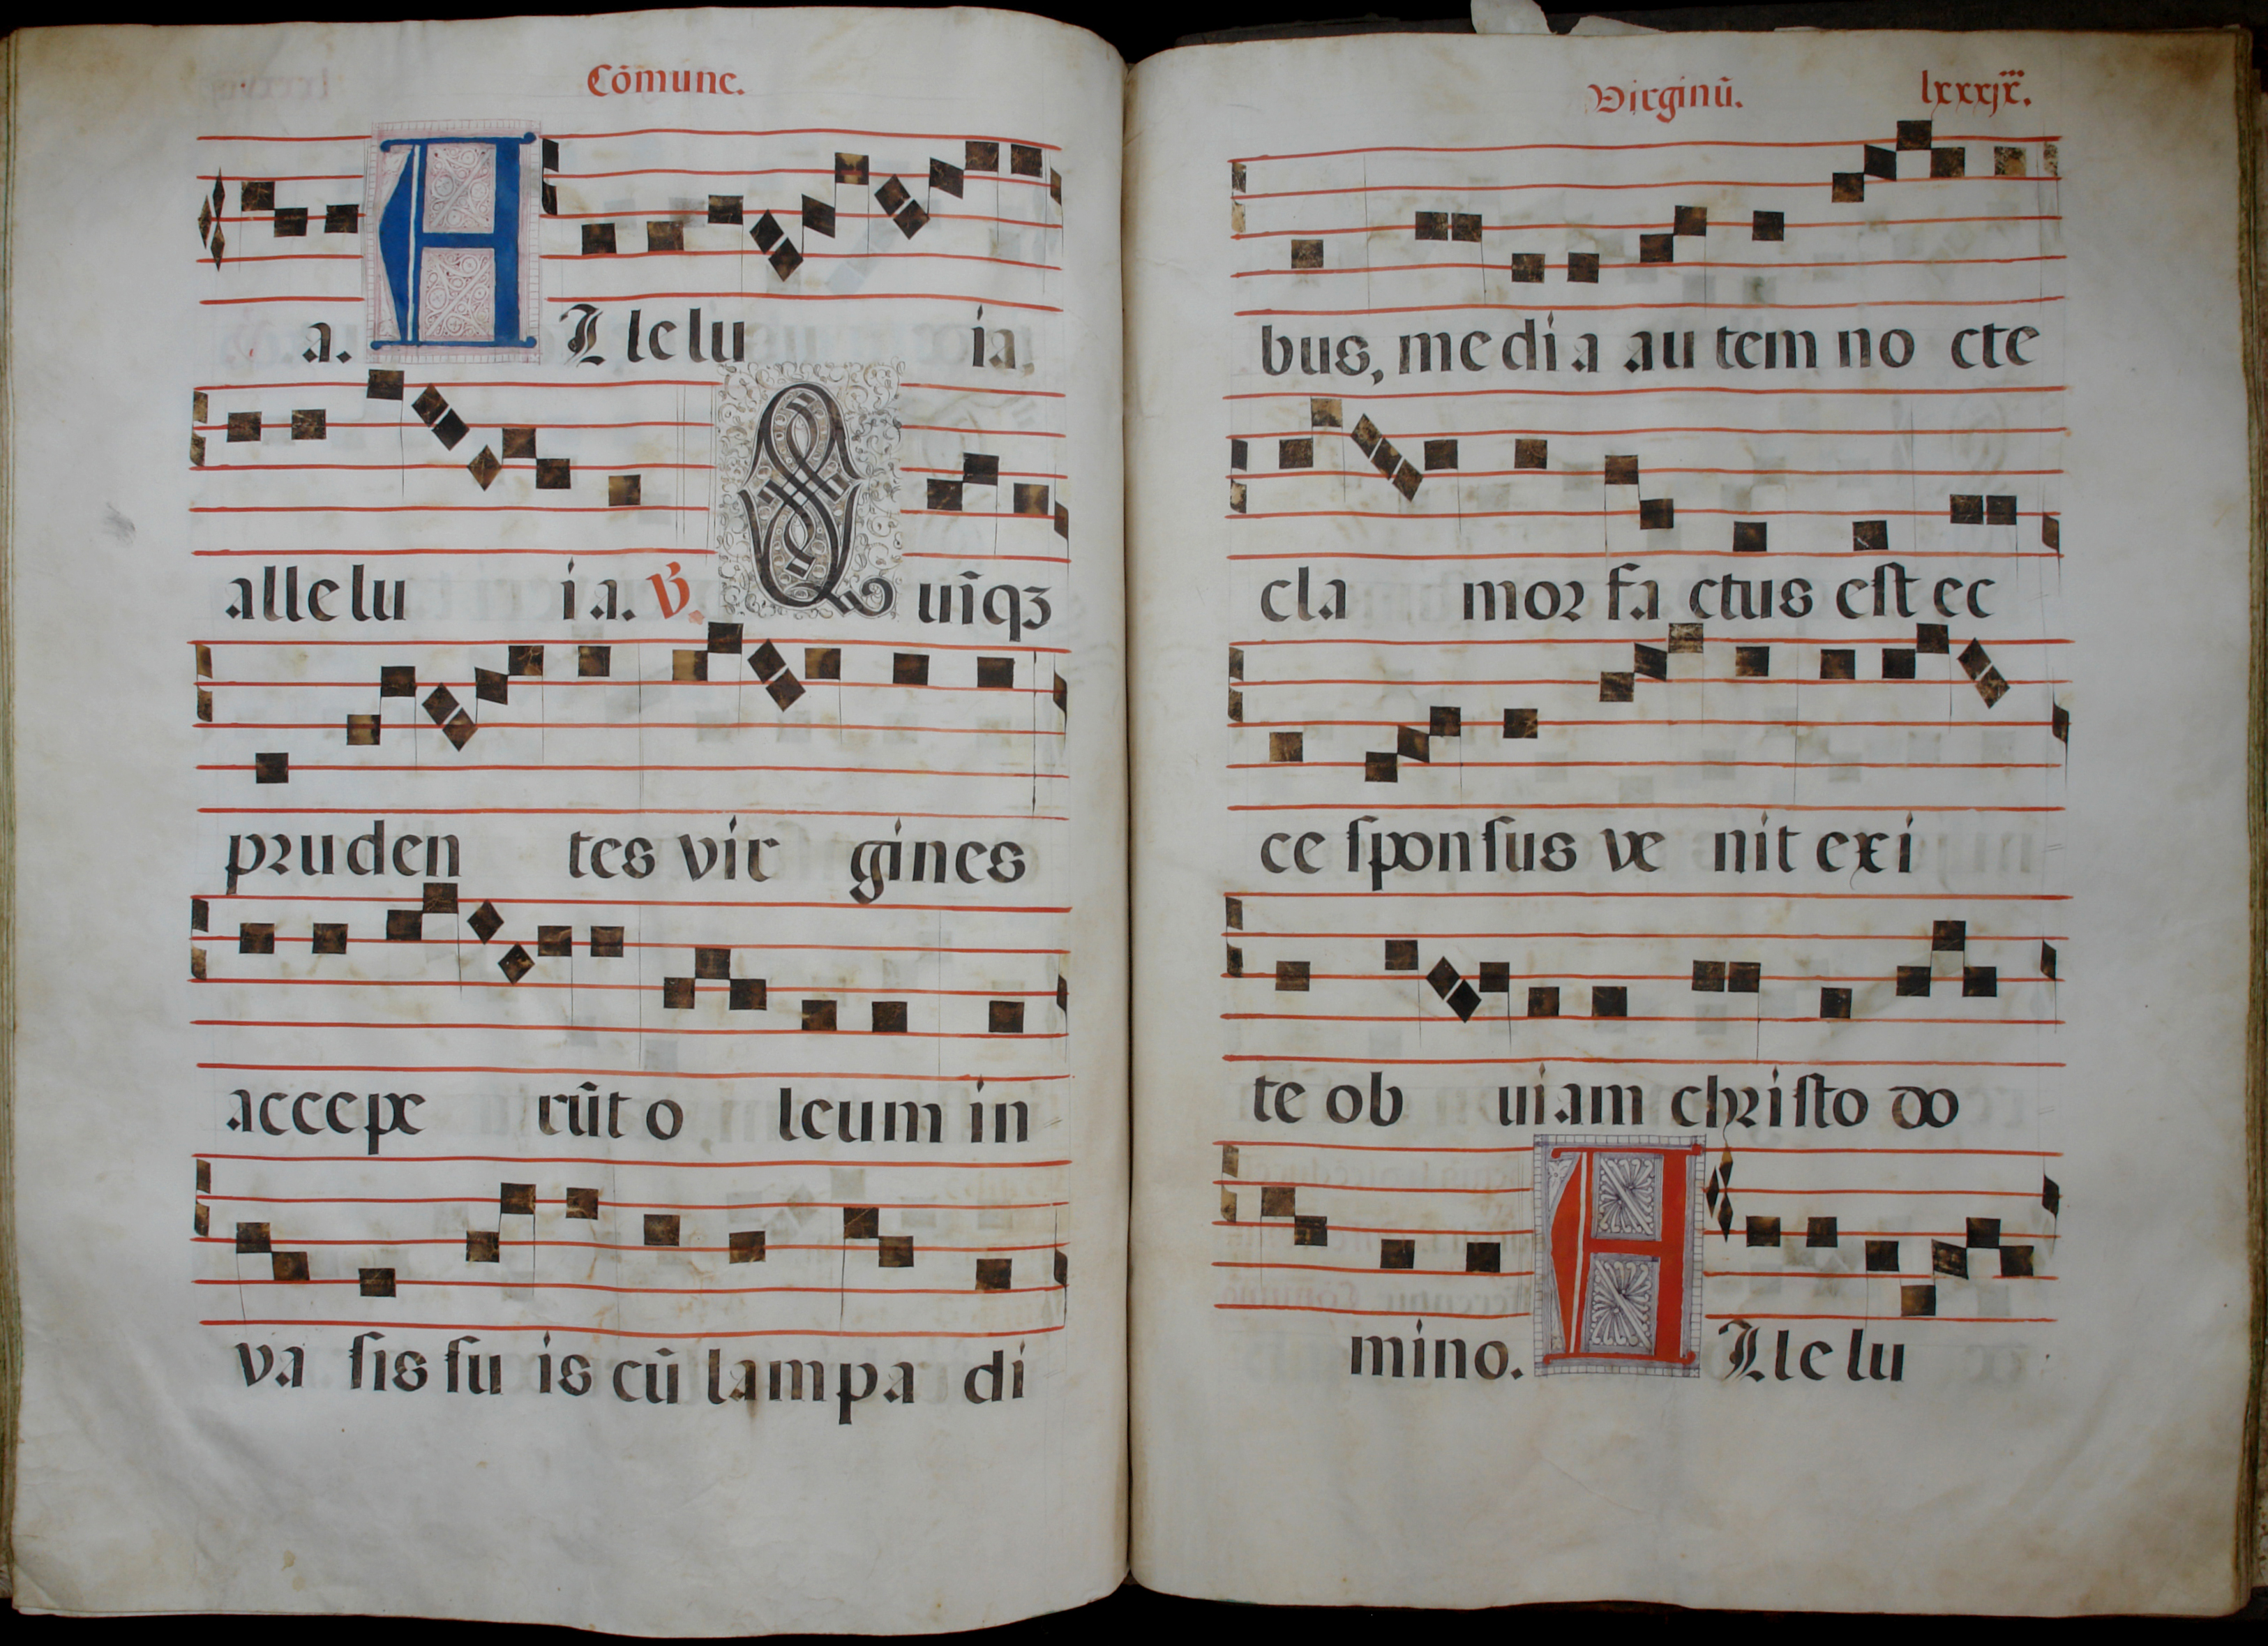 Cōmune.
a. Allelu ia.
allelu ia. ℣. Quīqꝫ
pruden tes vir gines
accepe rūt o leum in
va sis su is cū lampa di
Virginū. lxxxjx.
bus, media autem no cte
cla mor factus est ec
ce sponsus ve nit exi
te ob uiam christo do
mino. Allelu